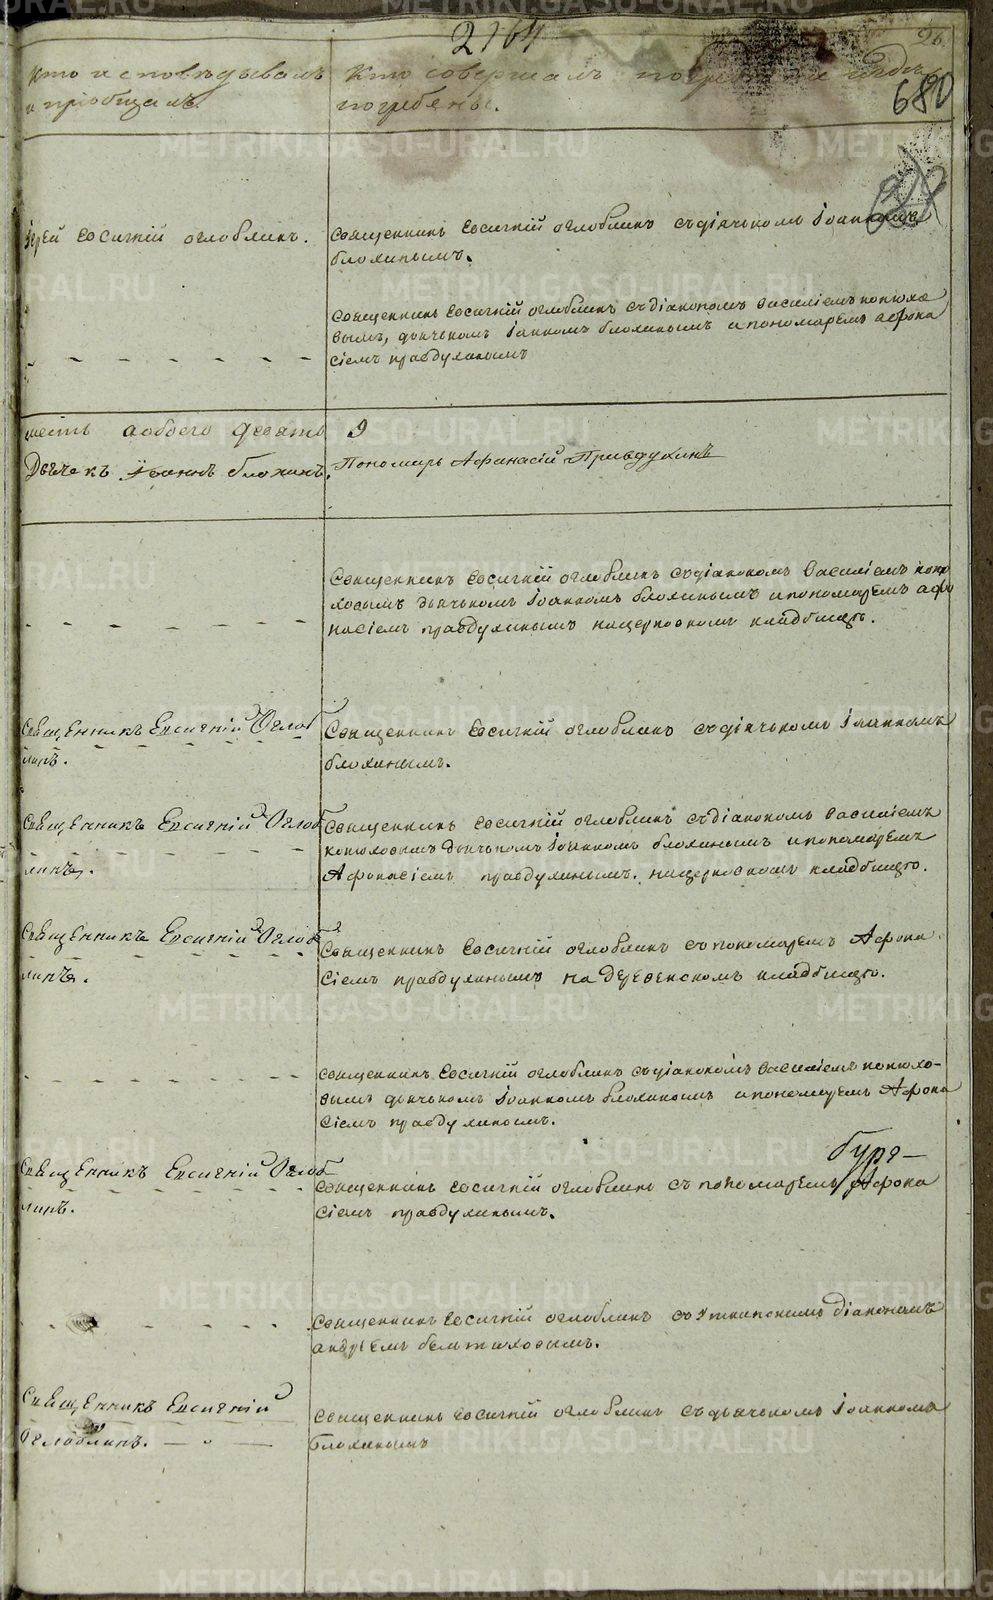 2164
26
680
Кто исповѣдывалъ
и пріобщалъ.
Кто совершалъ погребеніе и гдѣ
погребены.
Іерей Евсигній Оглоблинъ.
Священникъ Евсигній Оглоблинъ съ дьячькомъ Іоанномъ
блохинымъ.
Священникъ Евсигній Оглоблинъ съ діакономъ Василіемъ конюхо
вымъ, дьячькомъ Іоанномъ блохинымъ и пономаремъ Афона
сіемъ правдухинымъ
шесть а обоего девять 9
Дьячекъ Іоаннъ блохинъ.
Пономарь Афанасій Правдухинъ
Священникъ Евсигній Оглоблинъ съ діакономъ Василіемъ коню
ховымъ дьячькомъ Іоанномъ блохинымъ и пономаремъ афо
насіемъ правдухинымъ на церковномъ кладбищѣ.
Священникъ Евсигній Оглоб
линъ.
Священникъ Евсигній Оглоблинъ съ дьячькомъ Іоанномъ
блохинымъ.
Священникъ Евсигній Оглоб
линъ.
Священникъ Евсигній Оглоблинъ съ діакономъ Василіемъ
конюховымъ дьячькомъ Іоанномъ блохинымъ и пономаремъ
Афонасіемъ правдухинымъ. на церковномъ кладбищѣ.
Священникъ Евсигній Оглоб
линъ.
Священникъ Евсигній Оглоблинъ съ пономаремъ Афона
сіемъ правдухинымъ на деревенскомъ кладбищѣ.
Священникъ Евсигній Оглоблинъ съ діакономъ Василіемъ конюхо-
вымъ дьячькомъ Іоанномъ блохинымъ и пономаремъ Афона
сіемъ правдухинымъ.
Священникъ Евсигній Оглоб
линъ.
Священникъ Евсигній Оглоблинъ съ пономаремъ Афона
сіемъ правдухинымъ.
Священникъ Евсигній Оглоблинъ діакономъ
андреемъ
Священникъ Евсигній
Оглоблинъ.
Священникъ Евсигній Оглоблинъ съ дьячькомъ Іоанномъ
блохинымъ
METRIKI.GASO-URAL.RU